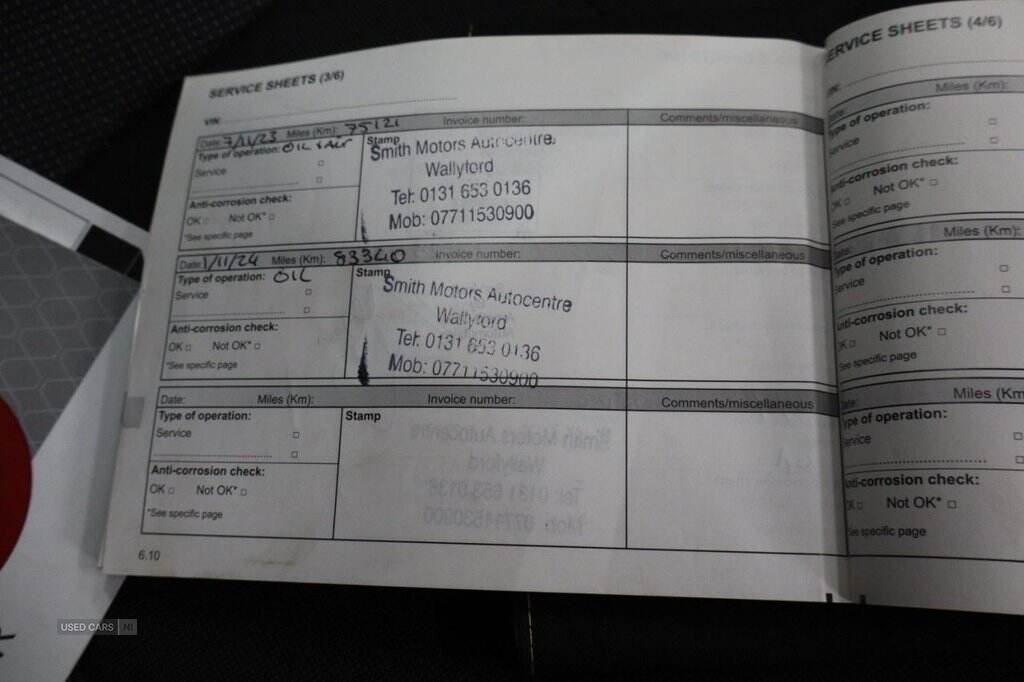 SERVICE SHEETS (3/6)
VIN:
Date: 7/11/23 Miles (Km): 75121 Invoice number: Comments/miscellaneous
Type of operation: OIL & AIR
Service
Stamp
Smith Motors Autocentre.
Wallyford
Tel: 0131 653 0136
Mob: 07711530900
Anti-corrosion check:
OK □ Not OK* □
*See specific page
Date: 1/11/24 Miles (Km): 83340 Invoice number: Comments/miscellaneous
Type of operation: OIL
Service
Stamp
Smith Motors Autocentre
Wallyford
Tel: 0131 653 0136
Mob: 07711530900
Anti-corrosion check:
OK □ Not OK* □
*See specific page
Date: Miles (Km): Invoice number: Comments/miscellaneous
Type of operation:
Service
Stamp
Anti-corrosion check:
OK □ Not OK* □
*See specific page
6.10
ERVICE SHEETS (4/6)
Miles (Km):
ype of operation:
ervice
nti-corrosion check:
K □ Not OK* □
See specific page
Miles (Km):
ype of operation:
ervice
nti-corrosion check:
K □ Not OK* □
See specific page
Miles (Km
ype of operation:
ervice
nti-corrosion check:
K □ Not OK* □
ee specific page
USED CARS NI